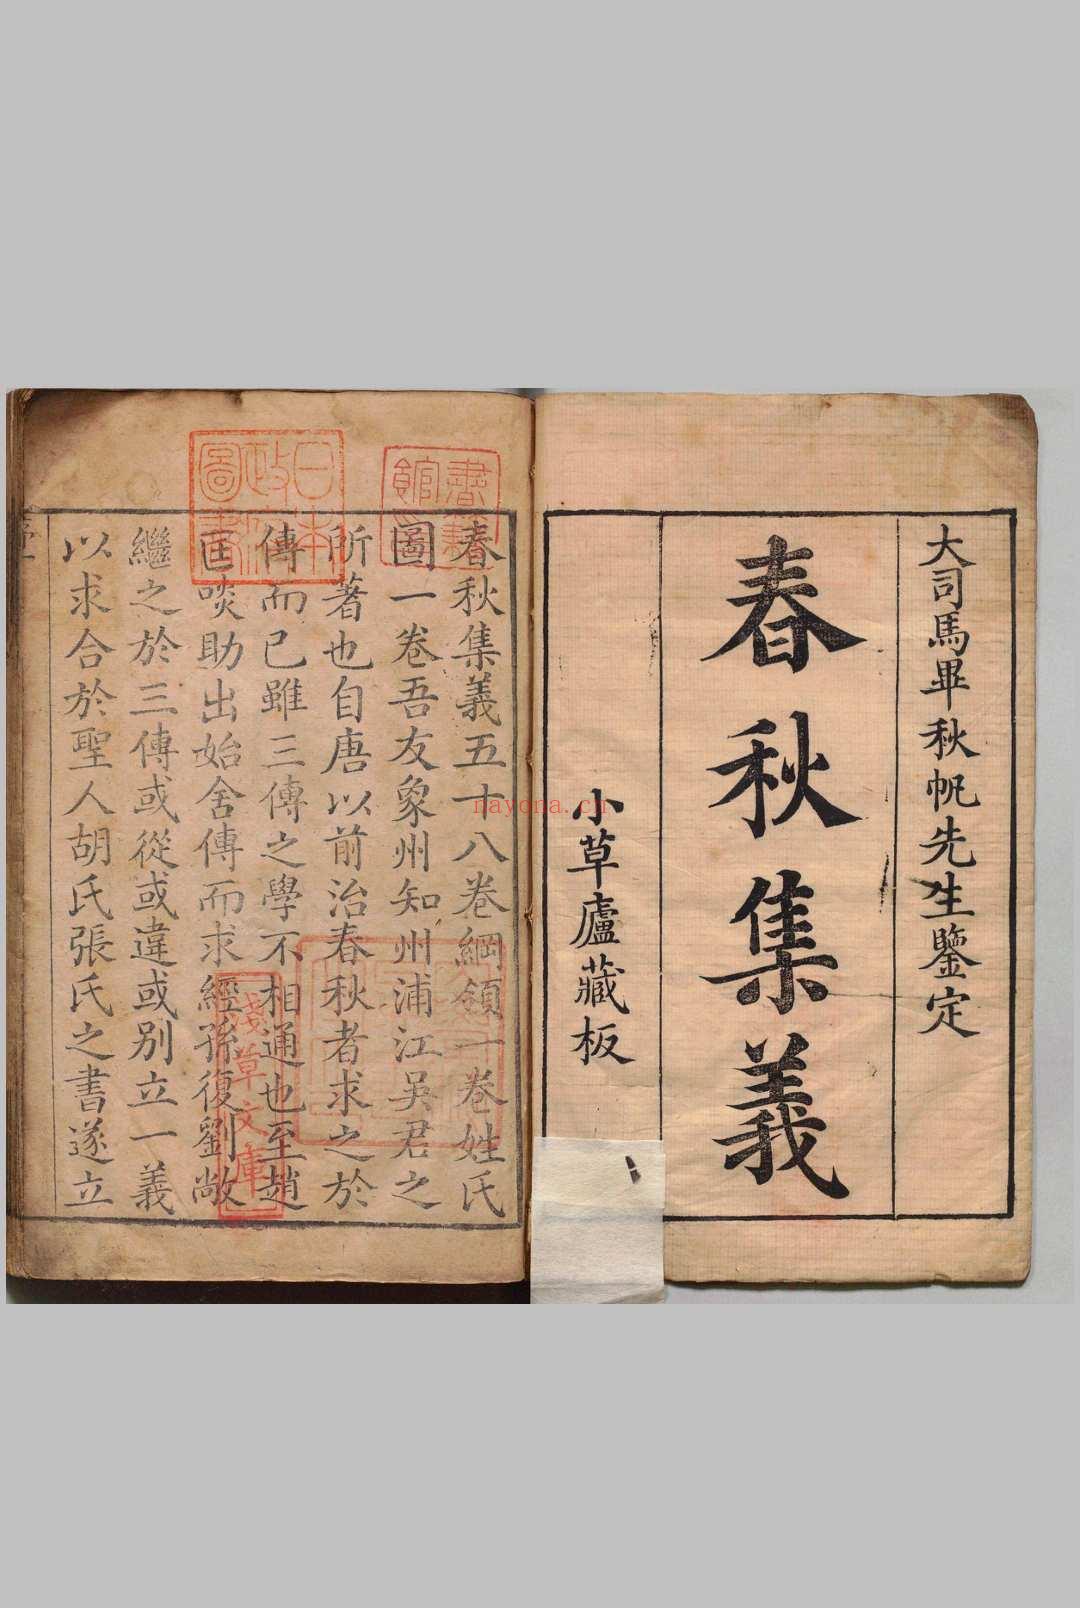 大司馬畢秋帆先生鑒定
春秋集義
小草廬藏板
春秋集義五十八卷綱領一卷姓氏
圖一卷吾友象州知州浦江吳君之
所著也自唐以前治春秋者求之於
傳而已雖三傳之學不相通也至趙
匡啖助出始舍傳而求經孫復劉敞
繼之於三傳或從或違或别立一義
以求合於聖人胡氏張氏之書遂立
日本政府圖書
淺草文庫
nayona.cn